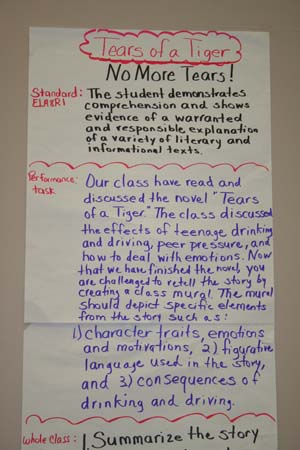 Tears of a Tiger
No More Tears!
Standard: The student demonstrates
ELA8R1 comprehension and shows
evidence of a warranted
and responsible explanation
of a variety of literary and
informational texts.
Performance Our class have read and
task discussed the novel "Tears
of a Tiger." The class discussed
the effects of teenage drinking
and driving, peer pressure, and
how to deal with emotions. Now
that we have finished the novel, you
are challenged to retell the story by
creating a class mural. The mural
should depict specific elements
from the story such as:
1) character traits, emotions
and motivations, 2) figurative
language used in the story,
and 3) consequences of
drinking and driving.
Whole Class: 1. Summarize the story